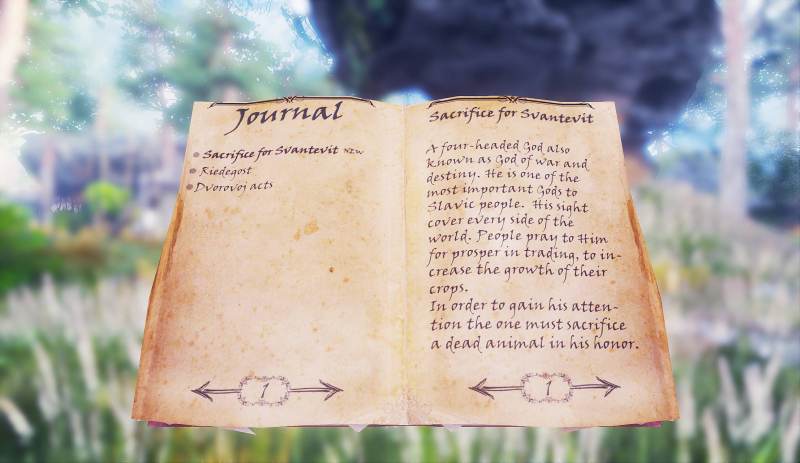 Journal
Sacrifice for Svantevit NEW
Riedegost
Dvorovoj acts
1
Sacrifice for Svantevit
A four-headed God also
known as God of war and
destiny. He is one of the
most important Gods to
Slavic people. His sight
cover every side of the
world. People pray to Him
for prosper in trading, to in-
crease the growth of their
crops.
In order to gain his atten-
tion the one must sacrifice
a dead animal in his honor.
1